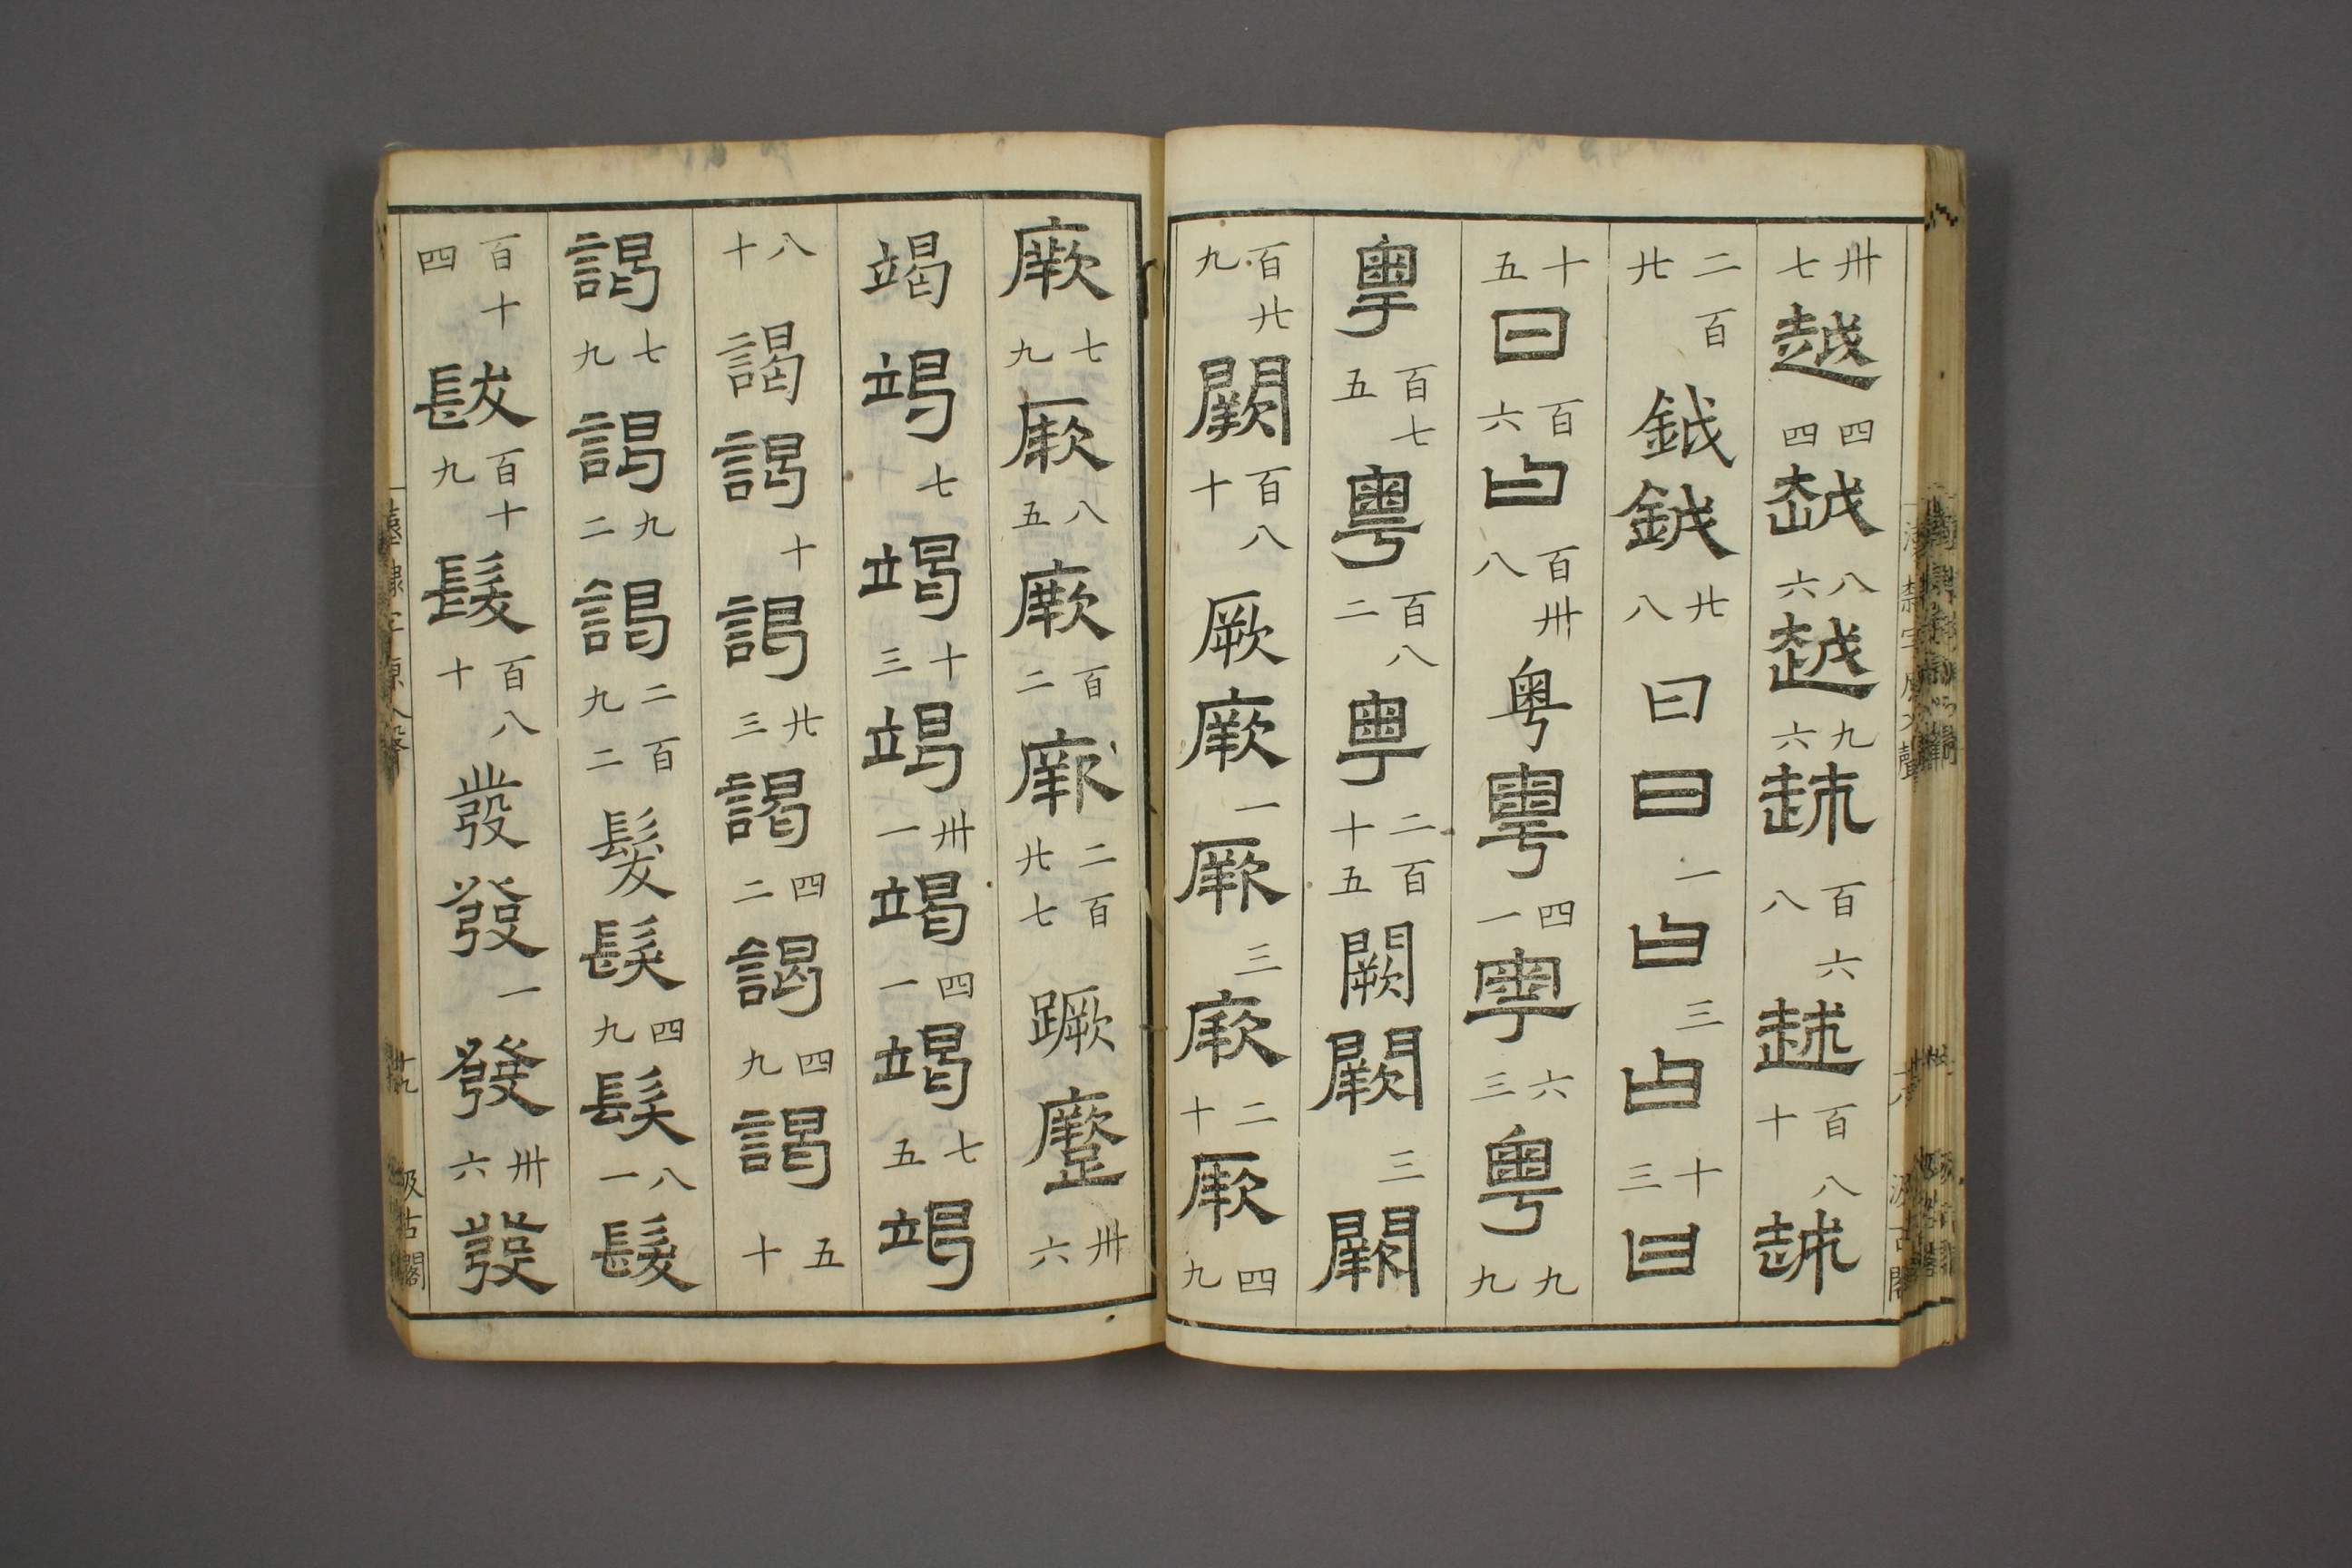 卅七越四四越八六越九六越百六八越百八十越
二百廿鉞鉞廿八曰曰一曰三曰十三曰
十五曰百六曰百卅八粤粤四一粤六三粤九九
粤百七五粤百八二粤二百十五闕闕三闕
百廿九闕百八十厥厥一厥三厥二十厥四九
漢隸字原入聲 汲古閣
厥七九厥八五厥百二厥二百廿七蹶蹷卅六
竭竭七竭十三竭卅一竭四一竭七五竭
八十謁謁十謁廿三謁四二謁四九謁五十
謁七九謁九二謁二百九二髮髮四九髮八一髮
百十四髮百十九髮百八十發發一發卅六發
漢隸字原入聲 十九 汲古閣